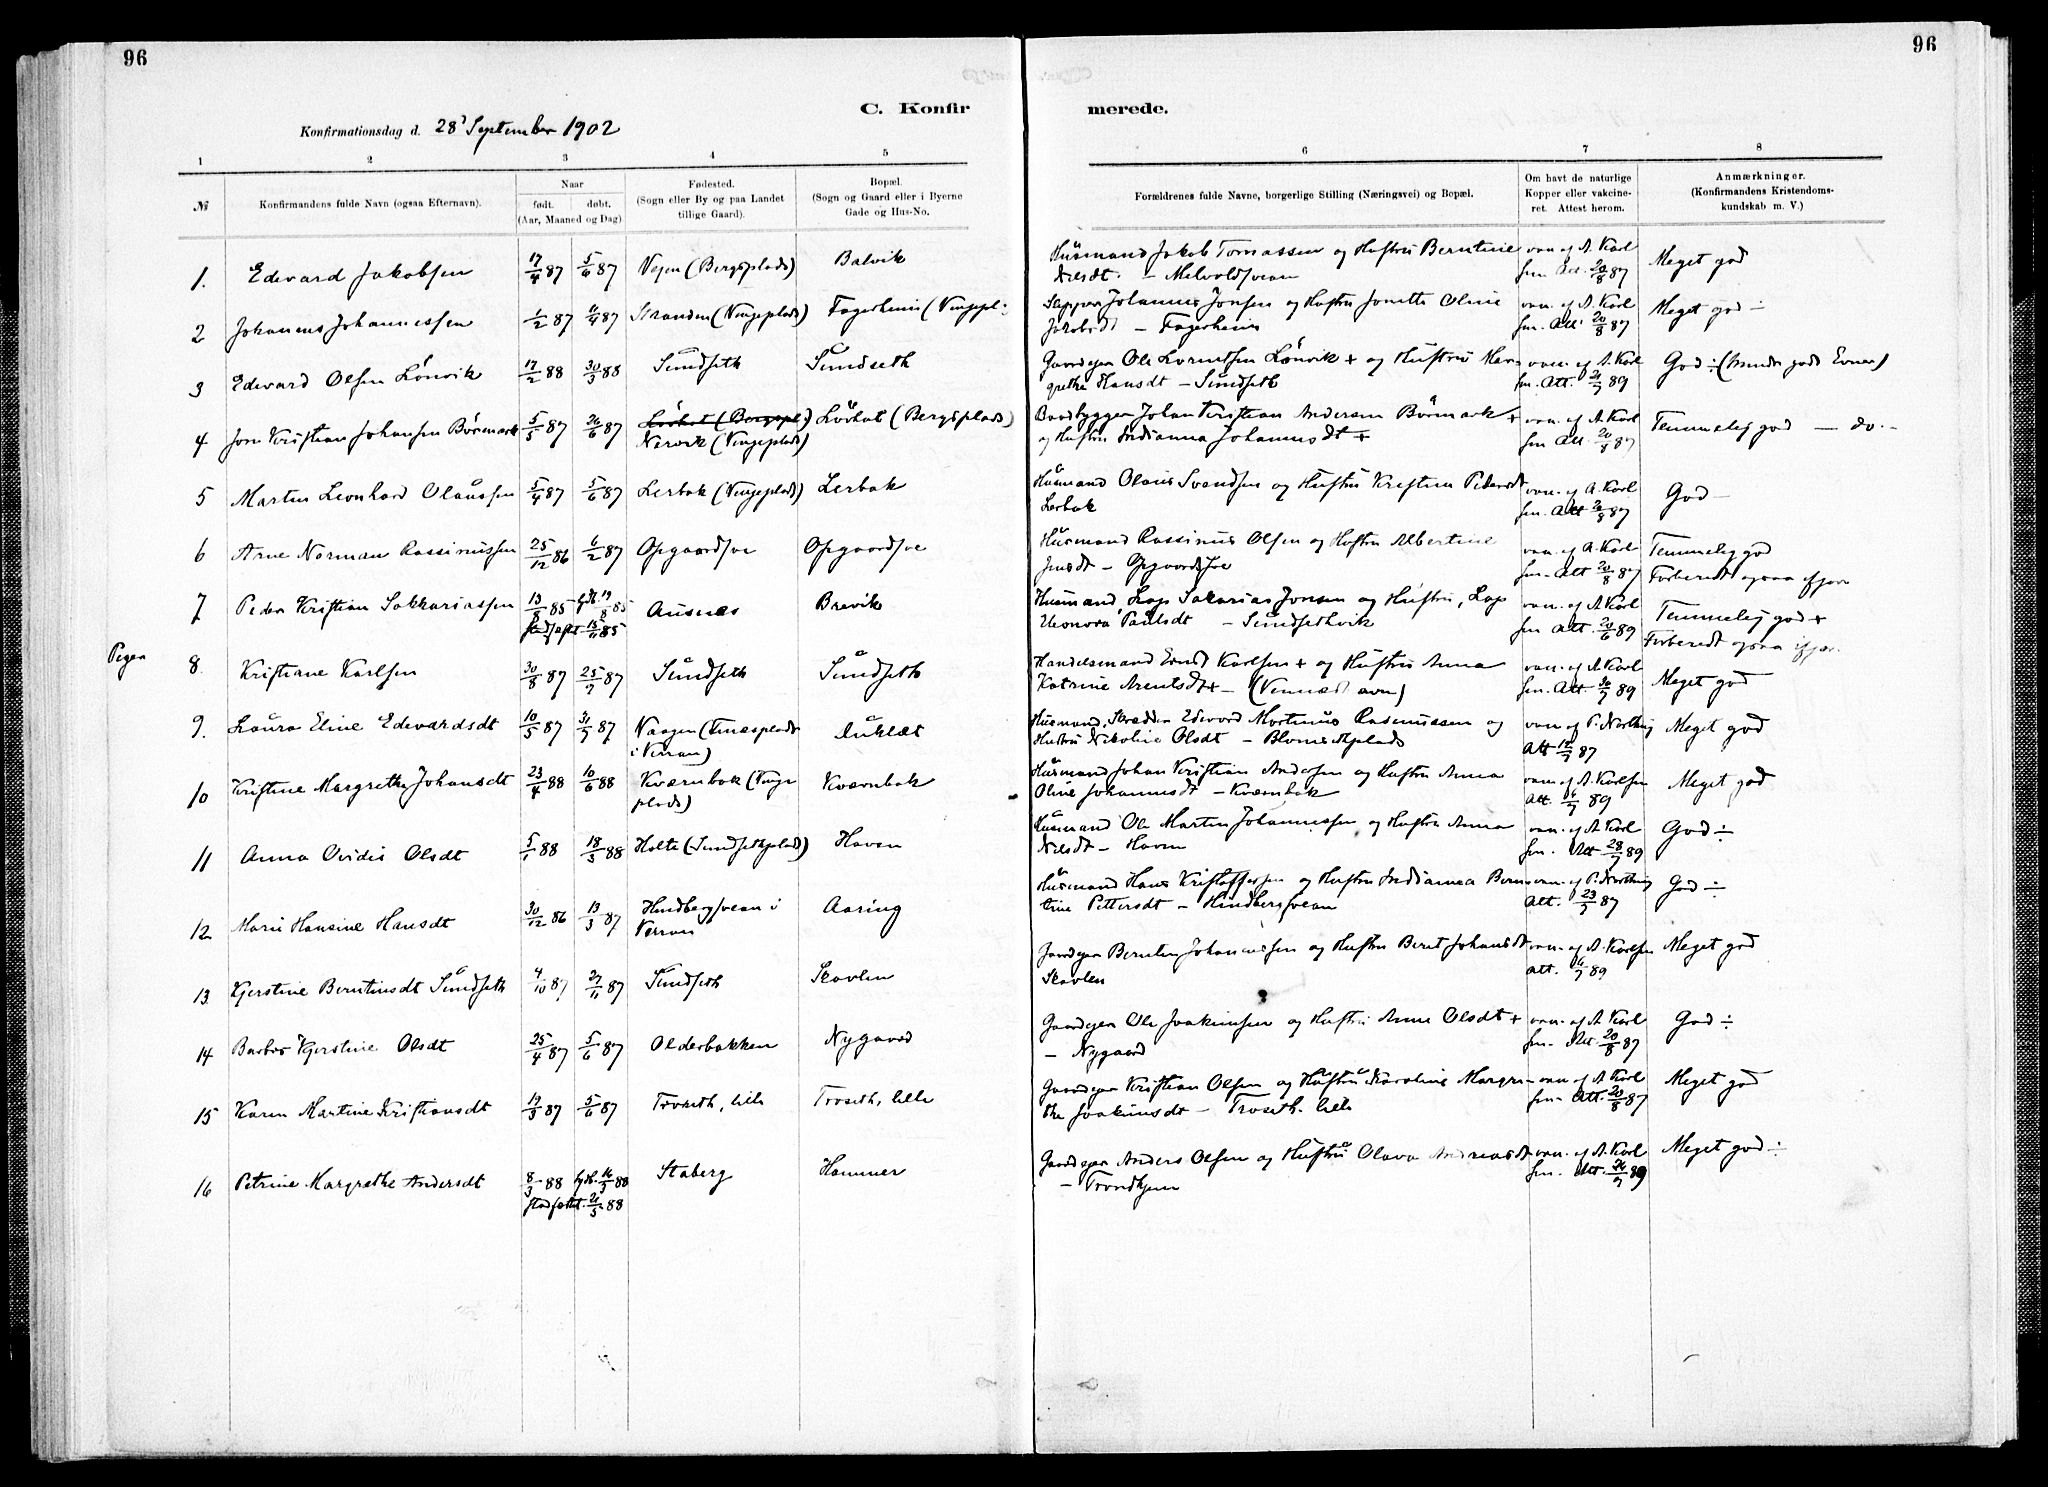 96
96
C. Konfir
merede.
Konfirmationsdag d. 28' September 1902
1 2 3 4 5 6 7 8
№
Konfirmandens fulde Navn (ogsaa Efternavn).
Naar
født. døbt.
(Aar, Maaned og Dag)
Fødested.
(Sogn eller By og paa Landet
tillige Gaard).
Bopæl.
(Sogn og Gaard eller i Byerne
Gade og Hus-No.
Forældrenes fulde Navne, borgerlige Stilling (Næringsvei) og Bopæl.
Om havt de naturlige
Kopper eller vakcine-
ret. Attest herom.
Anmærkninger.
(Konfirmandens Kristendoms-
kundskab m. V.)
1. Edevard Jakobsen 17/4 87 5/6 87 Vejen (Bergsplads) Balvik
Husmand Jakob Tomassen og Hustru Berntine
Nilsdt. – Melvoldsvean
vac. af A. Karl
sen Att. 20/8 87
Meget god
2 Johannes Johannessen 1/2 87 11/4 87 Stranden (Vingeplads) Fagerheim (Vingepl.
Johannes Jonsen og Hustru Jonetta Oline
Jakobsdt – Fagerheim
vac. af A. Karl
sen. Att. 20/8 87
Meget god ÷
3 Edevard Olsen Lönvik 17/2 88 30/3 88 Sundseth Sundseth
Gaardeger Ole Lorentsen Lönvik + og Hustru Mar-
grethe Hansdt – Sundseth
vac. af A. Karl
sen. Att. 21/7 89
God ÷ (mindre gode Evner)
4 Jon Kristian Johansen Börmark 5/5 87 26/6 87 Nervik (Vingeplads) (Bergsplads)
Baadbygger Johan Kristian Andersen Börmark +
og Hustru Indianna Johannesdt +
vac. af A. Karl
sen Att. 20/8 87
Temmelig god — do. –
5 Martin Leonhard Olaussen 5/4 87 5/6 87 Lerbak (Vingeplads) Lerbak
Husmand Olaus Svendsen og Hustru Kristine Pedersdt
Lerbak
vac. af A. Karl
sen. Att 20/8 87
God –
6 Arne Norman Rassinussen 25/12 86 6/2 87 Opgaardsve Opgaardsve
Husmand Rassinus Olsen og Hustru Albertine
Jensdt – Opgaardsve
vac. af A. Karl
sen. Att 20/8 87
Temmelig god
Forberedt ogsaa ifjor
7 Peder Kristian Sakkariassen 13/8 85 hjd. 19/8 85 Ausnes Brevik
stadfæst 15/11 85
Husmand, Lap Sakarias Jonsen og Hustru, Lap
Eleonora Paulsdt – Sundsethvik
vac. af A Karl
sen Att. 20/6 89
Temmelig god +
Forberedt ogsaa ifjor.
Piger
8. Kristiane Karlsen 30/8 87 25/9 87 Sundseth Sundseth
Handelsmand Ernst Karlsen + og Hustru Anna
Katrine Arentsdt + –
vac. af A. Karl
sen. Att. 30/7 89
Meget god
9. Laura Eline Edevardsdt 10/5 87 31/7 87 Vaagen
i Verran)
Husmand, Skrædder Edevard Martinus Rasmussen og
Hustru Nikoline Olsdt –
vac. af P. Northug
Att 19/9 87
Meget god
10 Kristine Margrethe Johansdt 23/4 88 10/6 88 Kværnbak (Vinge
plads) Kværnbak
Husmand Johan Kristian Andersen og Hustru Anna
Oline Johannesdt – Kværnbak
vac. af A. Karlsen
Att. 6/7 89
Meget god
11 Anna Ovidie Olsdt 5/1 88 18/3 88 Holte (Sundsethplads) Haven
Husmand Ole Martin Johannessen og Hustru Anna
Nilsdt – Haven
vac. af A. Karl
sen. Att 28/7 89
God ÷
12 Marie Hansine Hansdt 30/12 86 13/3 87 Hindbergsvean i
Verran Aaring
Husmand Hans Kristoffersen og Hustru Indianna Bern-
tine Pettersdt – Hindbergsvean
vac. af P. Northug
Att. 23/9 87
God ÷
13 Kjerstine Berntinsdt Sundseth 4/10 87 27/11 87 Sundseth Skavlen
Gaardeger Berntin Johannessen og Hustru Beret Johansdt
Skavlen
vac. af A. Karlsen
Att. 6/7 89
Meget god
14 Barbro Kjerstine Olsdt 25/4 87 5/6 87 Olderbakken Nygaard
Gaardeger Ole Joakimsen og Hustru Anne Olsdt +
– Nygaard
vac. af A. Karl
sen. Att. 20/8 87
God ÷
15 Karen Martine Kristiansdt 19/3 87 5/6 87 Troseth, lille Troseth, lille
Gaardeger Kristian Olsen og Hustru Karoline Margre-
the Joakimsdt – Troseth. lille
vac. af A. Karl
sen. Att. 20/8 87
Meget god
16 Petrine Margrethe Andersdt 8/3 88 hjd. 14/3 88 Staberg Hammer
stadfæstet 21/5 88
Gaardeger Anders Olsen og Hustru Olava Andreasdt
– Trondhjem
vac. af A. Karl
sen. Att. 30/7 89
Meget god ÷